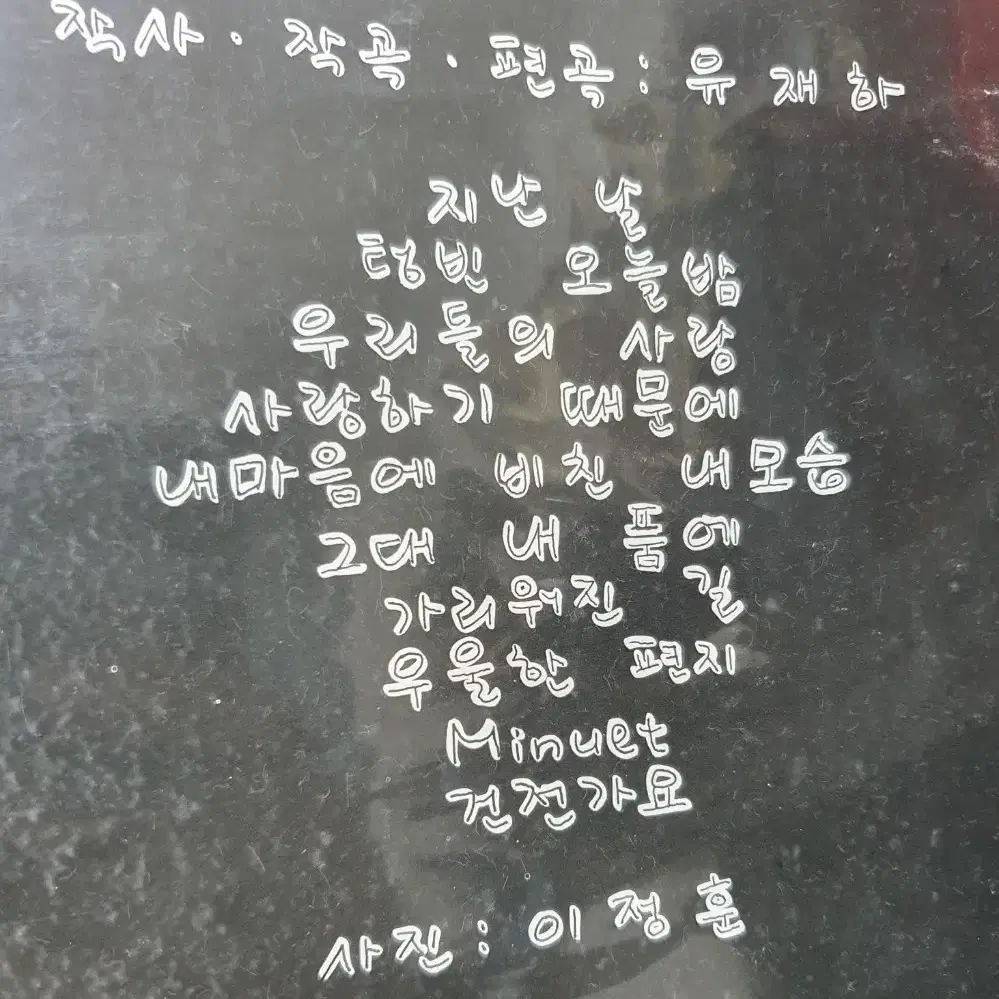 작사 · 작곡 · 편곡 : 유 재 하
지난 날
텅빈 오늘밤
우리들의 사랑
사랑하기 때문에
내마음에 비친 내모습
그대 내 품에
가리워진 길
우울한 편지
Minuet
건전가요
사진 : 이정훈